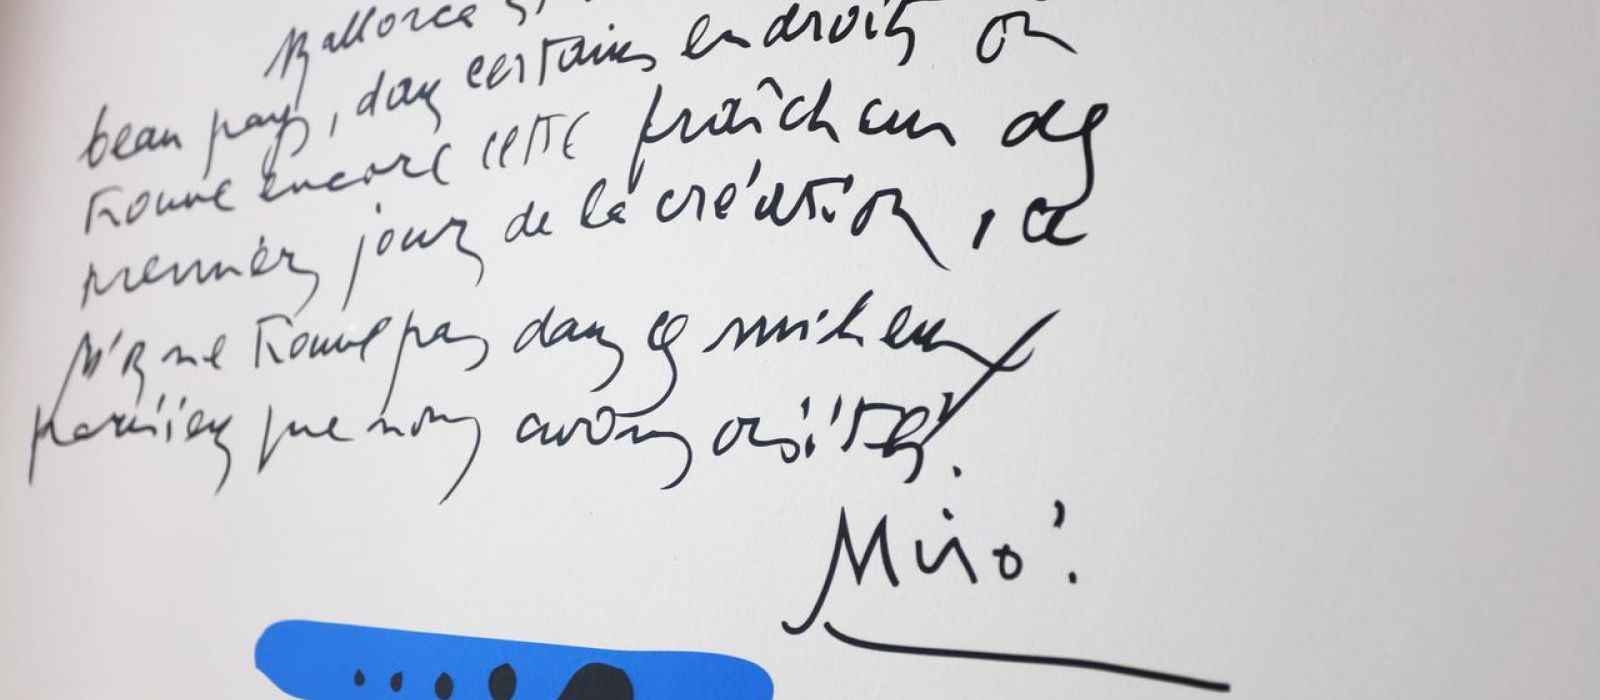 Mallorca
beau pays, dans certains endroits on
trouve encore cette fraîcheur des
premiers jours de la création, ce
ne trouve pas dans les milieux
parisiens que nous avons visités.
Miró.